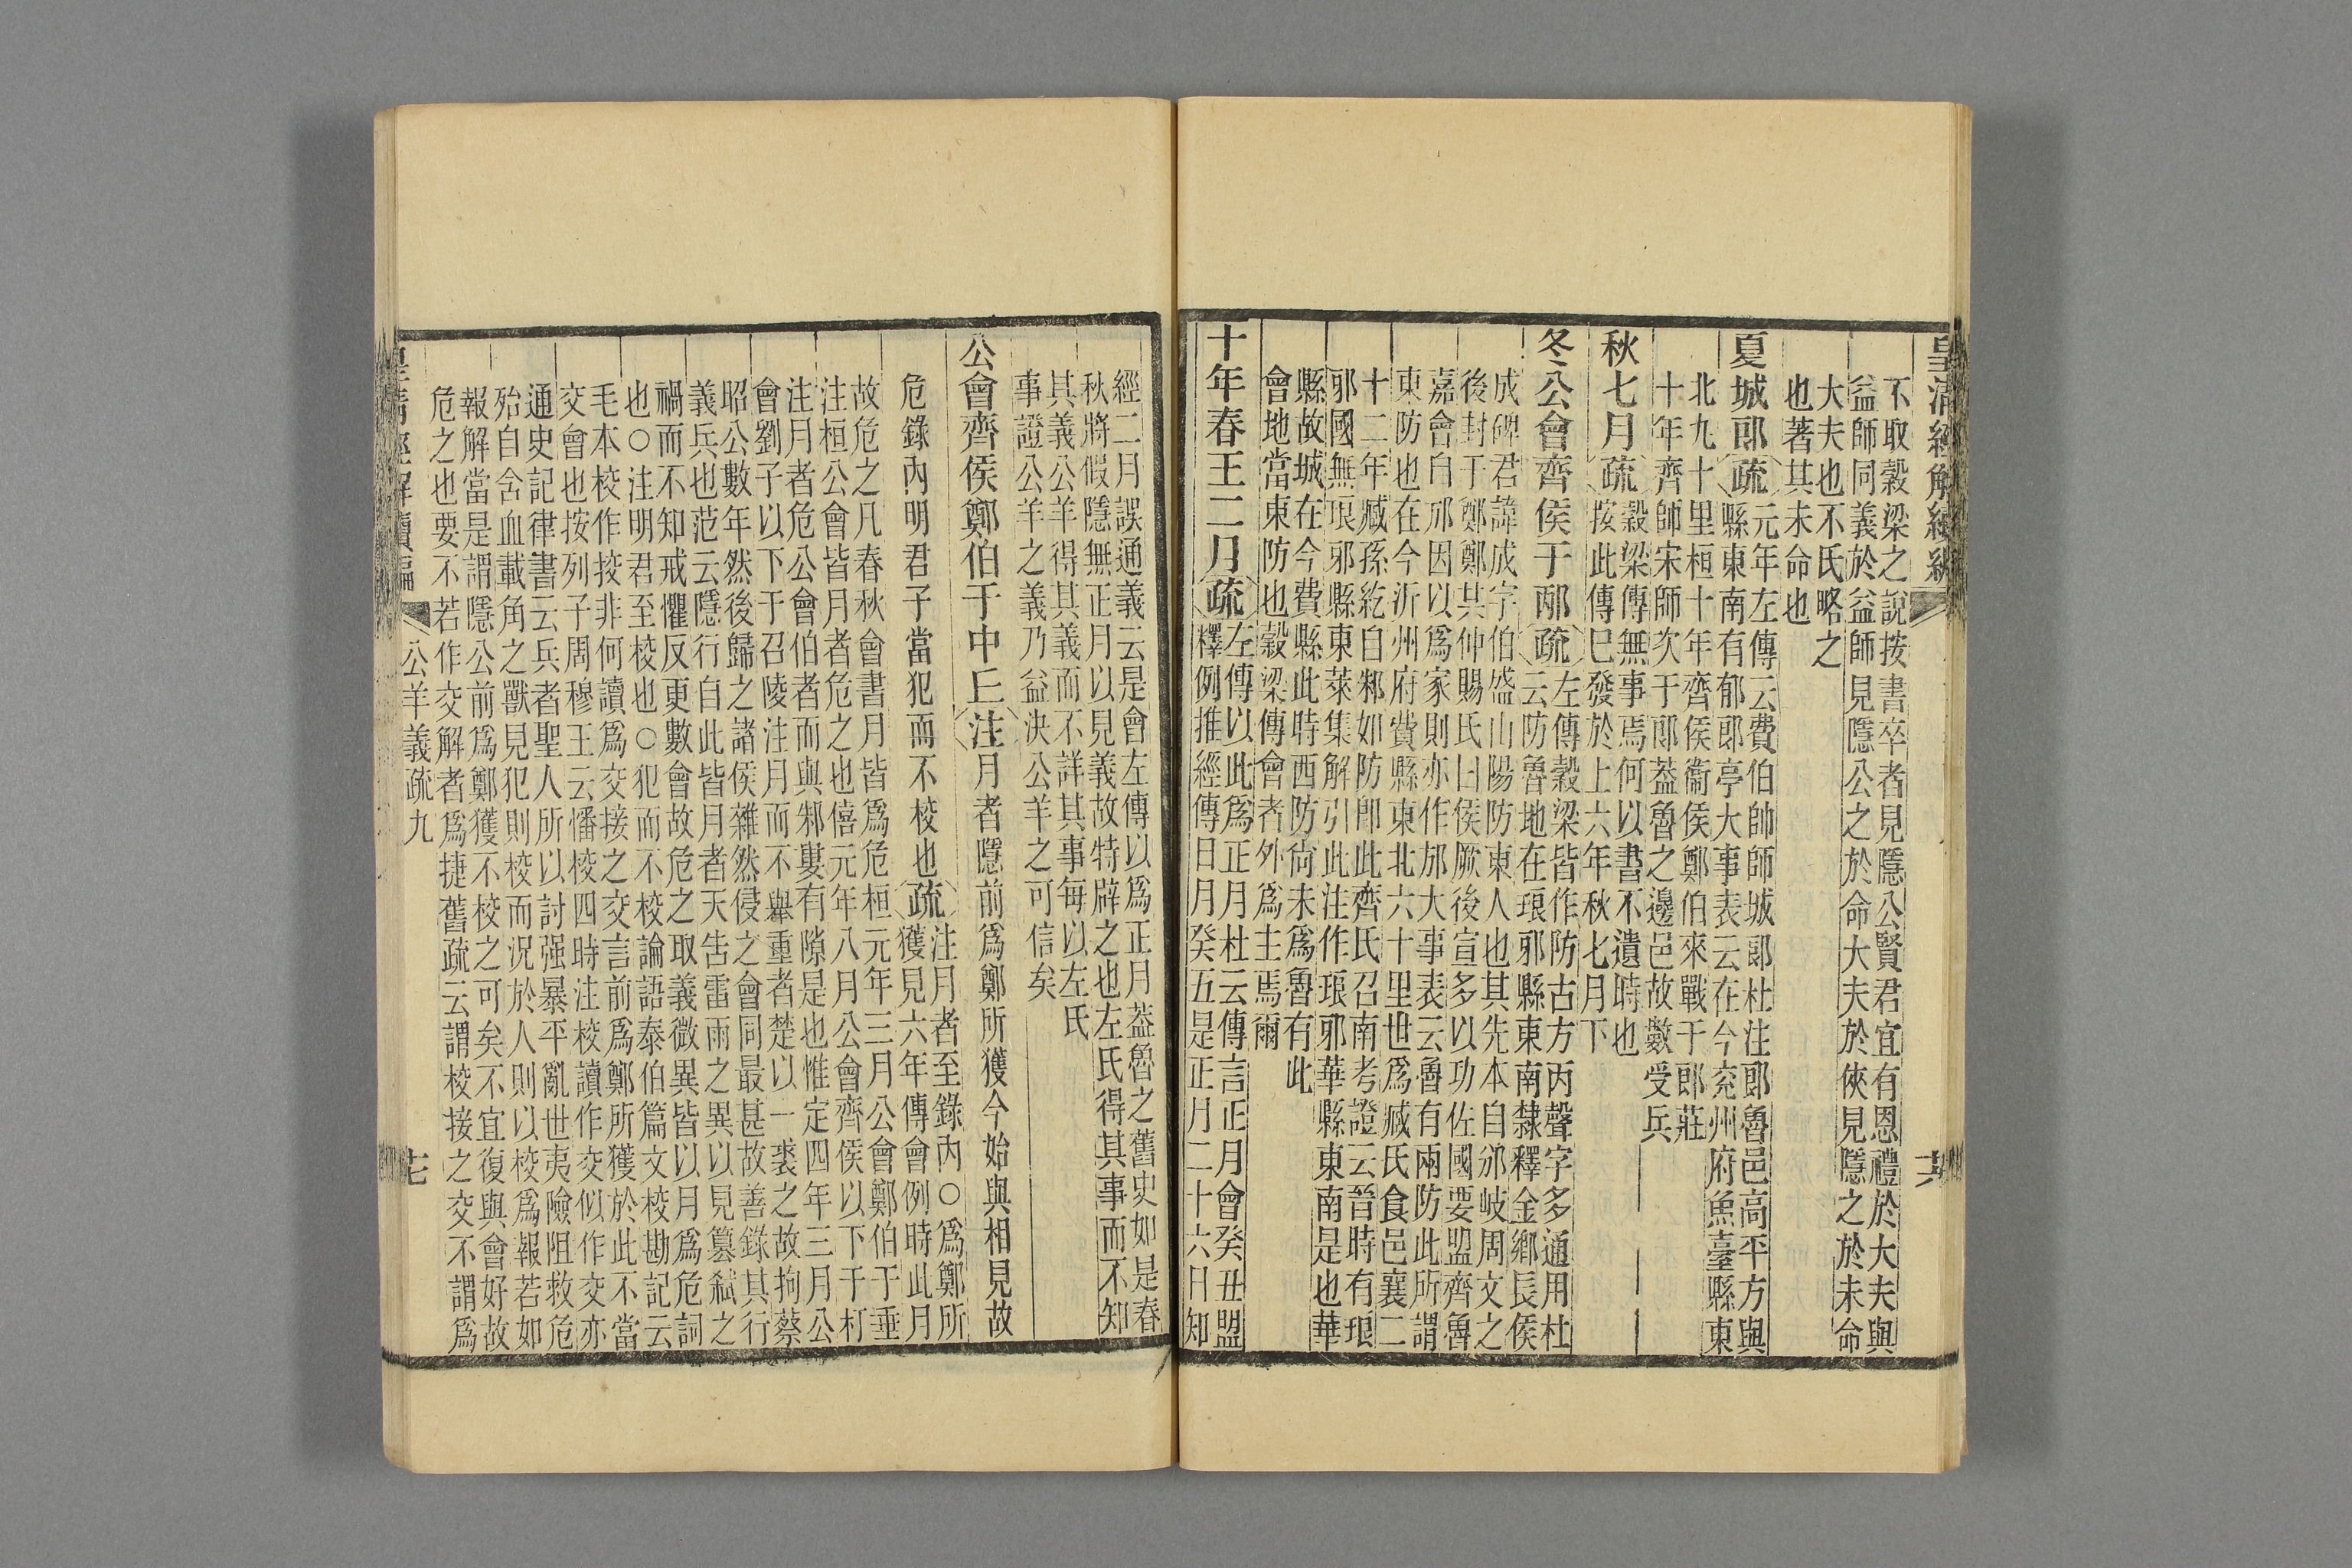 皇清經解續編
不取穀梁之說按書卒者見隱公賢君宜有恩禮於大夫與
益師同義於益師見隱公之於命大夫於俠見隱之於未命
大夫也不氏略之
也著其未命也
夏城郎疏元年左傳云費伯帥師城郎杜注郎魯邑高平方與
縣東南有郁郎亭大事表云在今兖州府魚臺縣東
北九十里桓十年齊侯衞侯鄭伯來戰于郎莊
十年齊師宋師次于郎葢魯之邊邑故數受兵
秋七月疏穀梁傳無事焉何以書不遺時也
按此傳巳發於上六年秋七月下
冬公會齊侯于邴疏左傳穀梁皆作防古方丙聲字多通用杜
云防魯地在琅邪縣東南隸釋金鄉長侯
成碑君諱成字伯盛山陽防東人也其先本自邠岐周文之
後封于鄭鄭共仲賜氏曰侯厥後宣多以功佐國要盟齊魯
嘉會自邴因以爲家則亦作邴大事表云魯有兩防此所謂
東防也在今沂州府費縣東北六十里世爲臧氏食邑襄二
十二年臧孫紇自邾如防卽此齊氏召南考證云晉時有琅
邪國無琅邪縣東萊集解引此注作琅邪華縣東南是也華
縣故城在今費縣此時西防尙未爲魯有此
會地當東防也穀梁傳會者外爲主焉爾
十年春王二月疏左傳以此爲正月杜云傳言正月會癸丑盟
釋例推經傳日月癸五是正月二十六日知
經二月誤通義云是會左傳以爲正月葢魯之舊史如是春
秋將假隱無正月以見義故特辟之也左氏得其事而不知
其義公羊得其義而不詳其事每以左氏
事證公羊之義乃益決公羊之可信矣
公會齊侯鄭伯于中丘注月者隱前爲鄭所獲今始與相見故
危錄內明君子當犯而不校也疏注月者至錄內○爲鄭所
獲見六年傳會例時此月
故危之凡春秋會書月皆爲危桓元年三月公會鄭伯于垂
注桓公會皆月者危之也僖元年八月公會齊侯以下于朾
注月者危公會伯者而與邾婁有隙是也惟定四年三月公
會劉子以下于召陵注月而不舉重者楚以一裘之故拘蔡
昭公數年然後歸之諸侯雜然侵之會同最甚故善錄其行
義兵也范云隱行自此皆月者天告雷雨之異以見篡弒之
禍而不知戒懼反更數會故危之取義微異皆以月爲危詞
也○注明君至校也○犯而不校論語泰伯篇文校勘記云
毛本校作挍非何讀爲交接之交言前爲鄭所獲於此不當
交會也按列子周穆王云憣校四時注校讀作交似作交亦
通史記律書云兵者聖人所以討强暴平亂世夷險阻救危
殆自含血戴角之獸見犯則校而況於人則以校爲報若如
報解當是謂隱公前爲鄭獲不校之可矣不宜復與會好故
危之也要不若作交解者爲捷舊疏云謂校接之交不謂爲
公羊義疏九